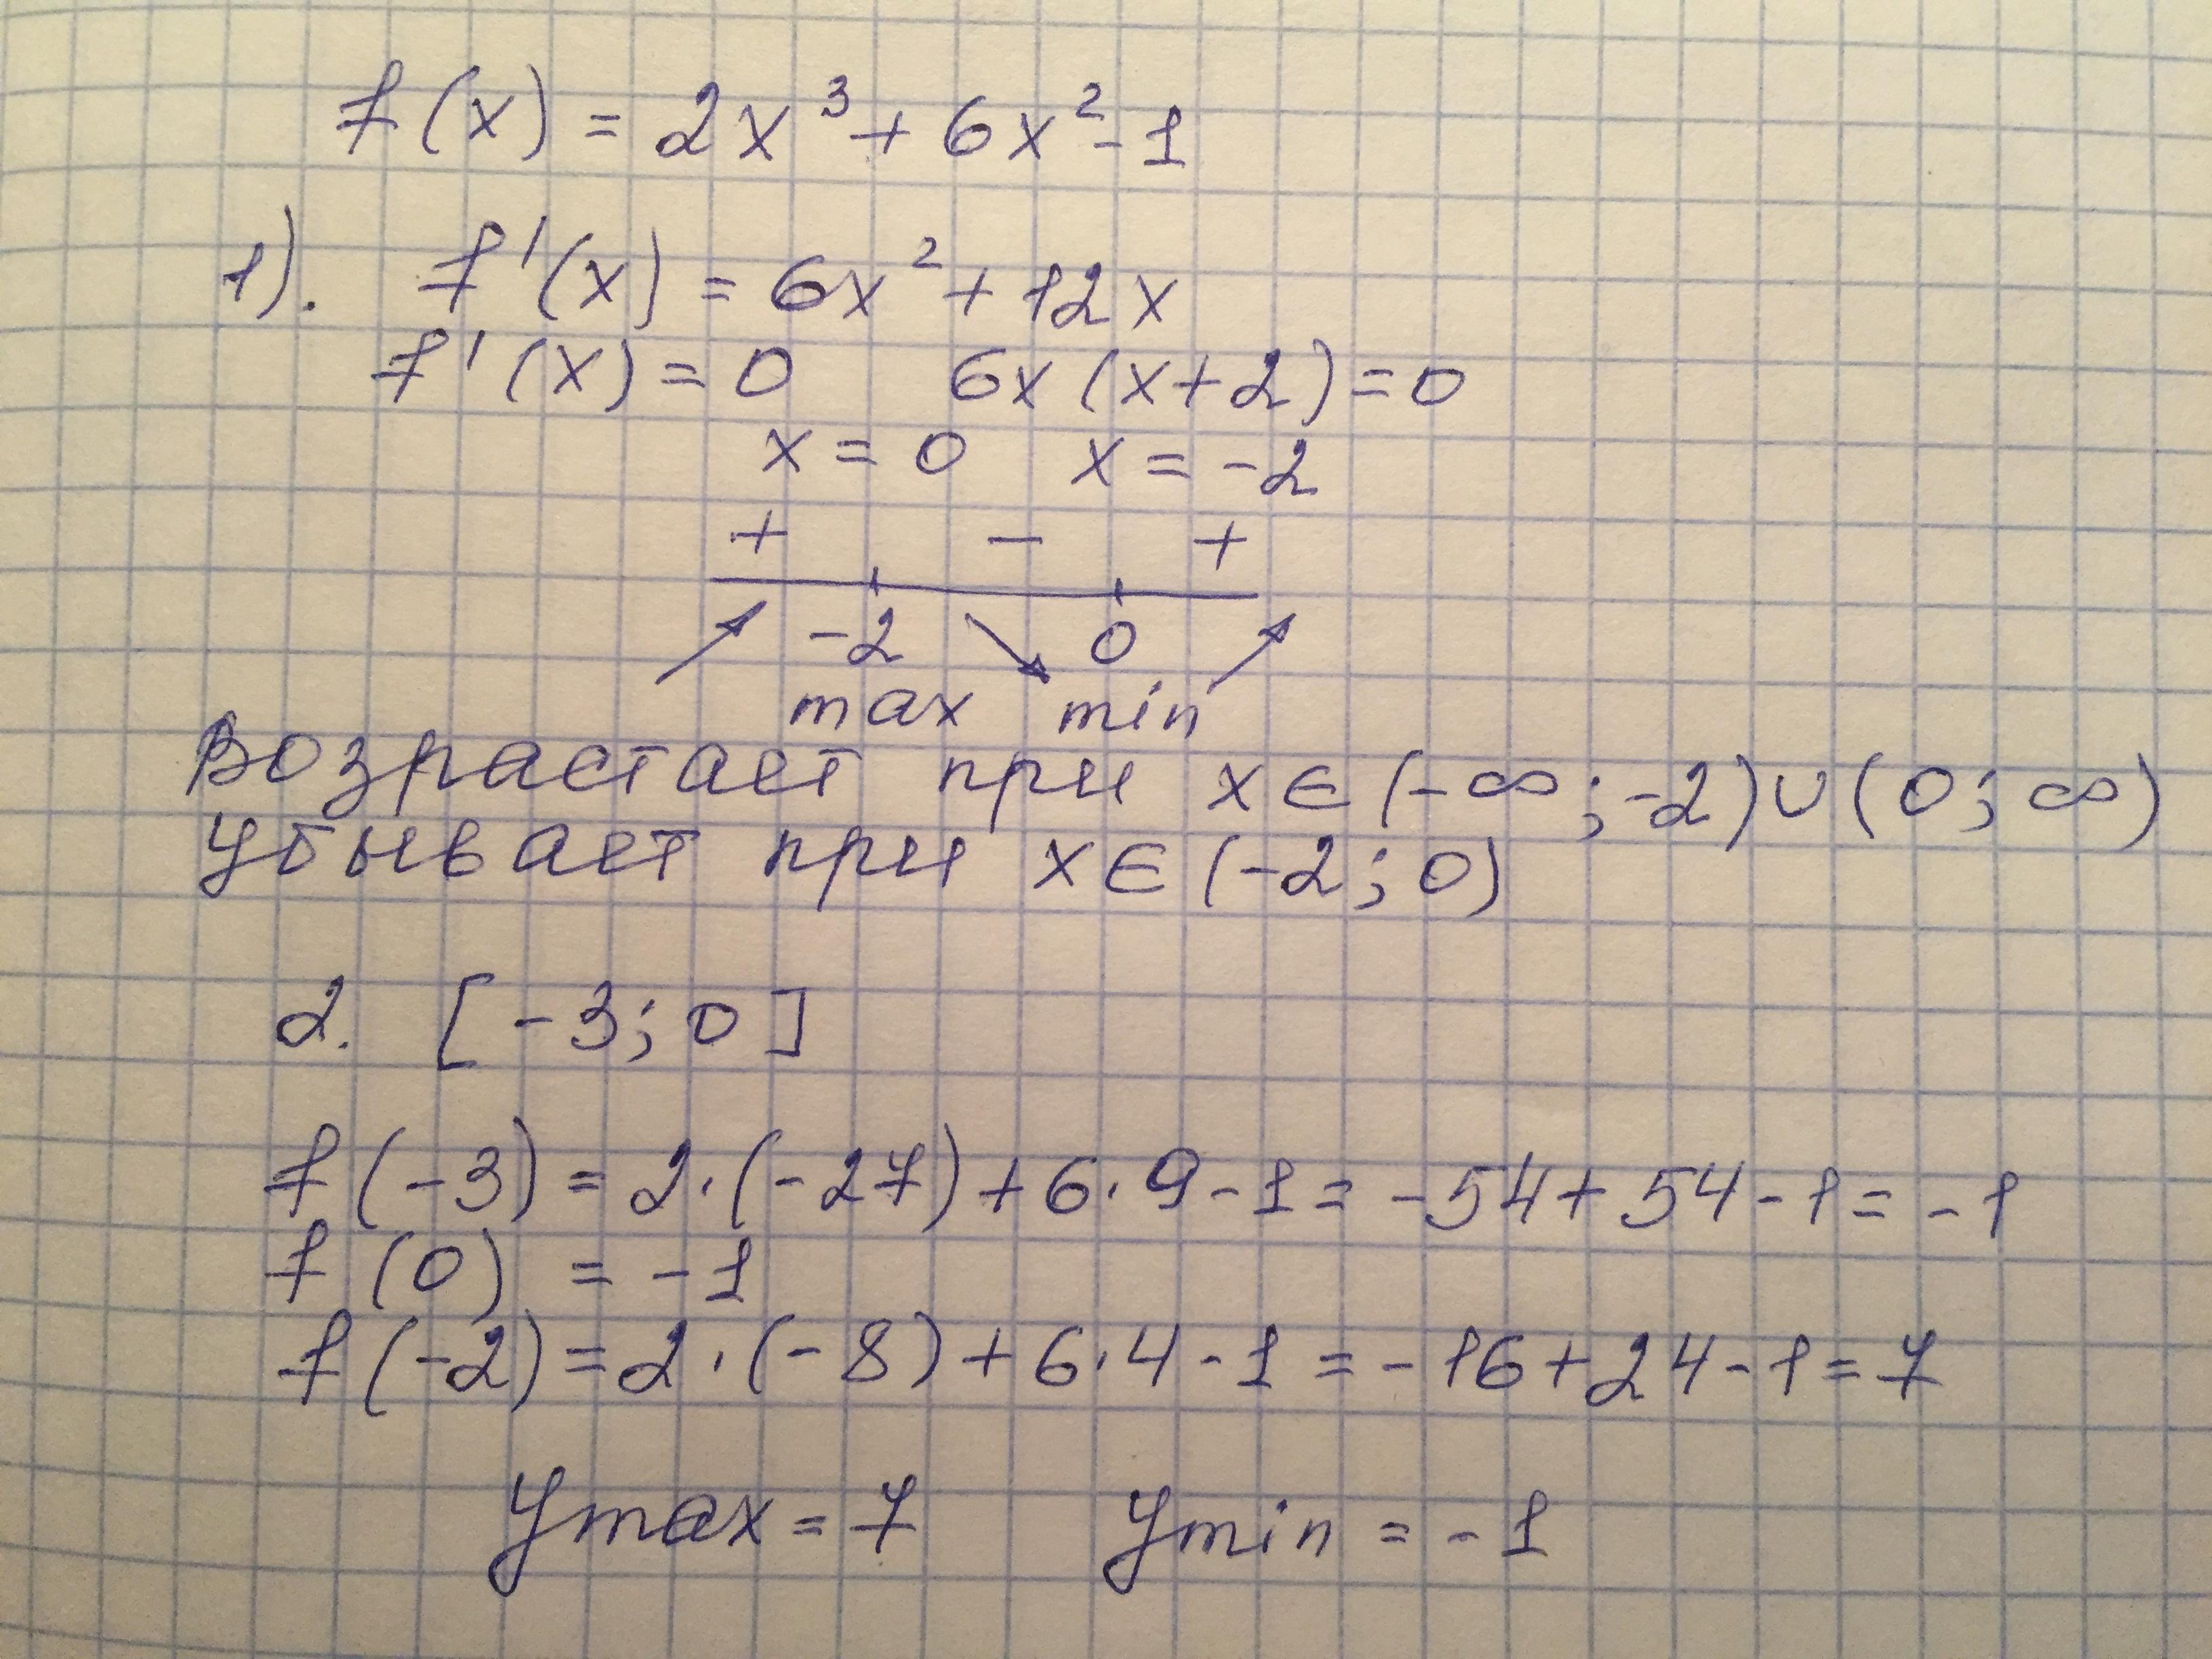 f(x) = 2x³ + 6x² - 1
1). f'(x) = 6x² + 12x
f'(x) = 0 6x(x+2) = 0
x = 0 x = -2
+ - +
-2 0
max min
Возрастает при x ∈ (-∞; -2) ∪ (0; ∞)
Убывает при x ∈ (-2; 0)
2. [-3; 0]
f(-3) = 2·(-27) + 6·9 - 1 = -54 + 54 - 1 = -1
f(0) = -1
f(-2) = 2·(-8) + 6·4 - 1 = -16 + 24 - 1 = 7
ymax = 7 ymin = -1